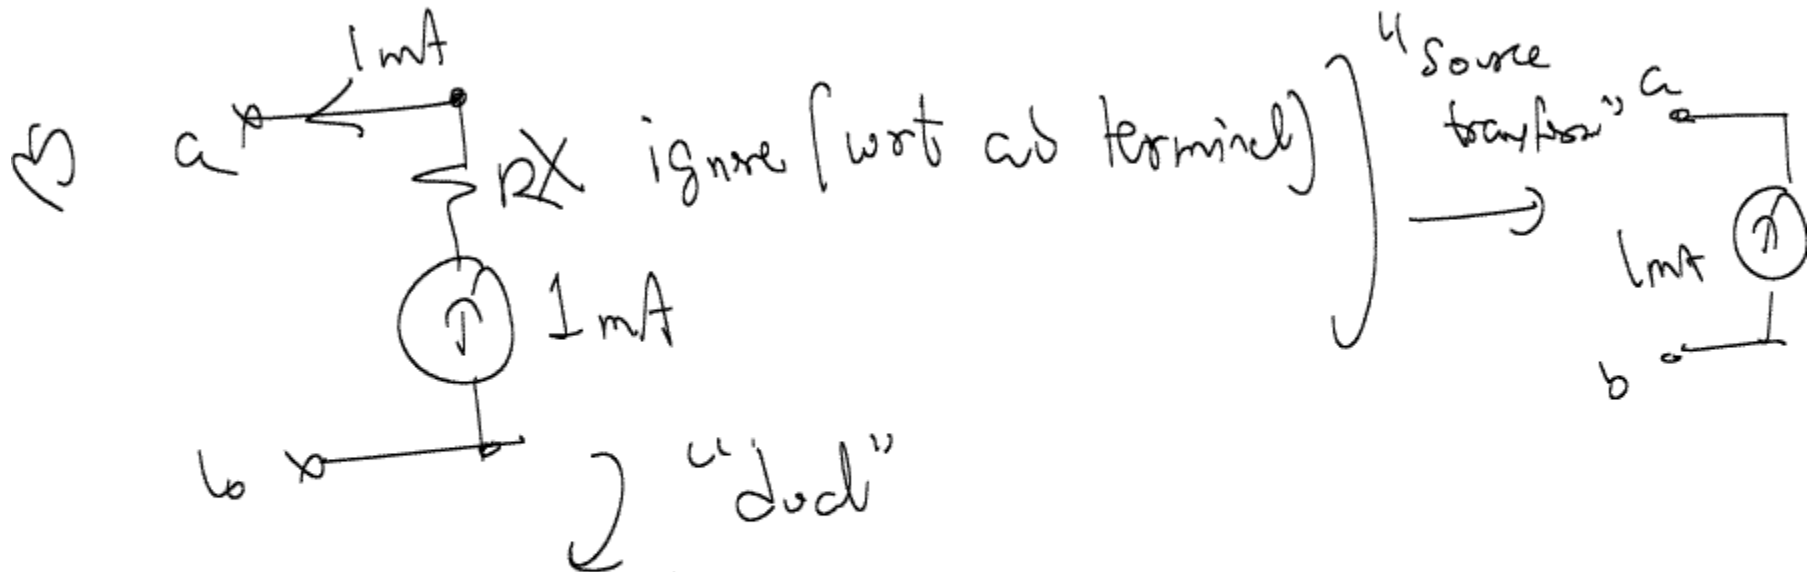 1 mA
a
R X ignore (wrt ab terminal)
1 mA
b
"dual"
"Source
transform"
a
1 mA
b